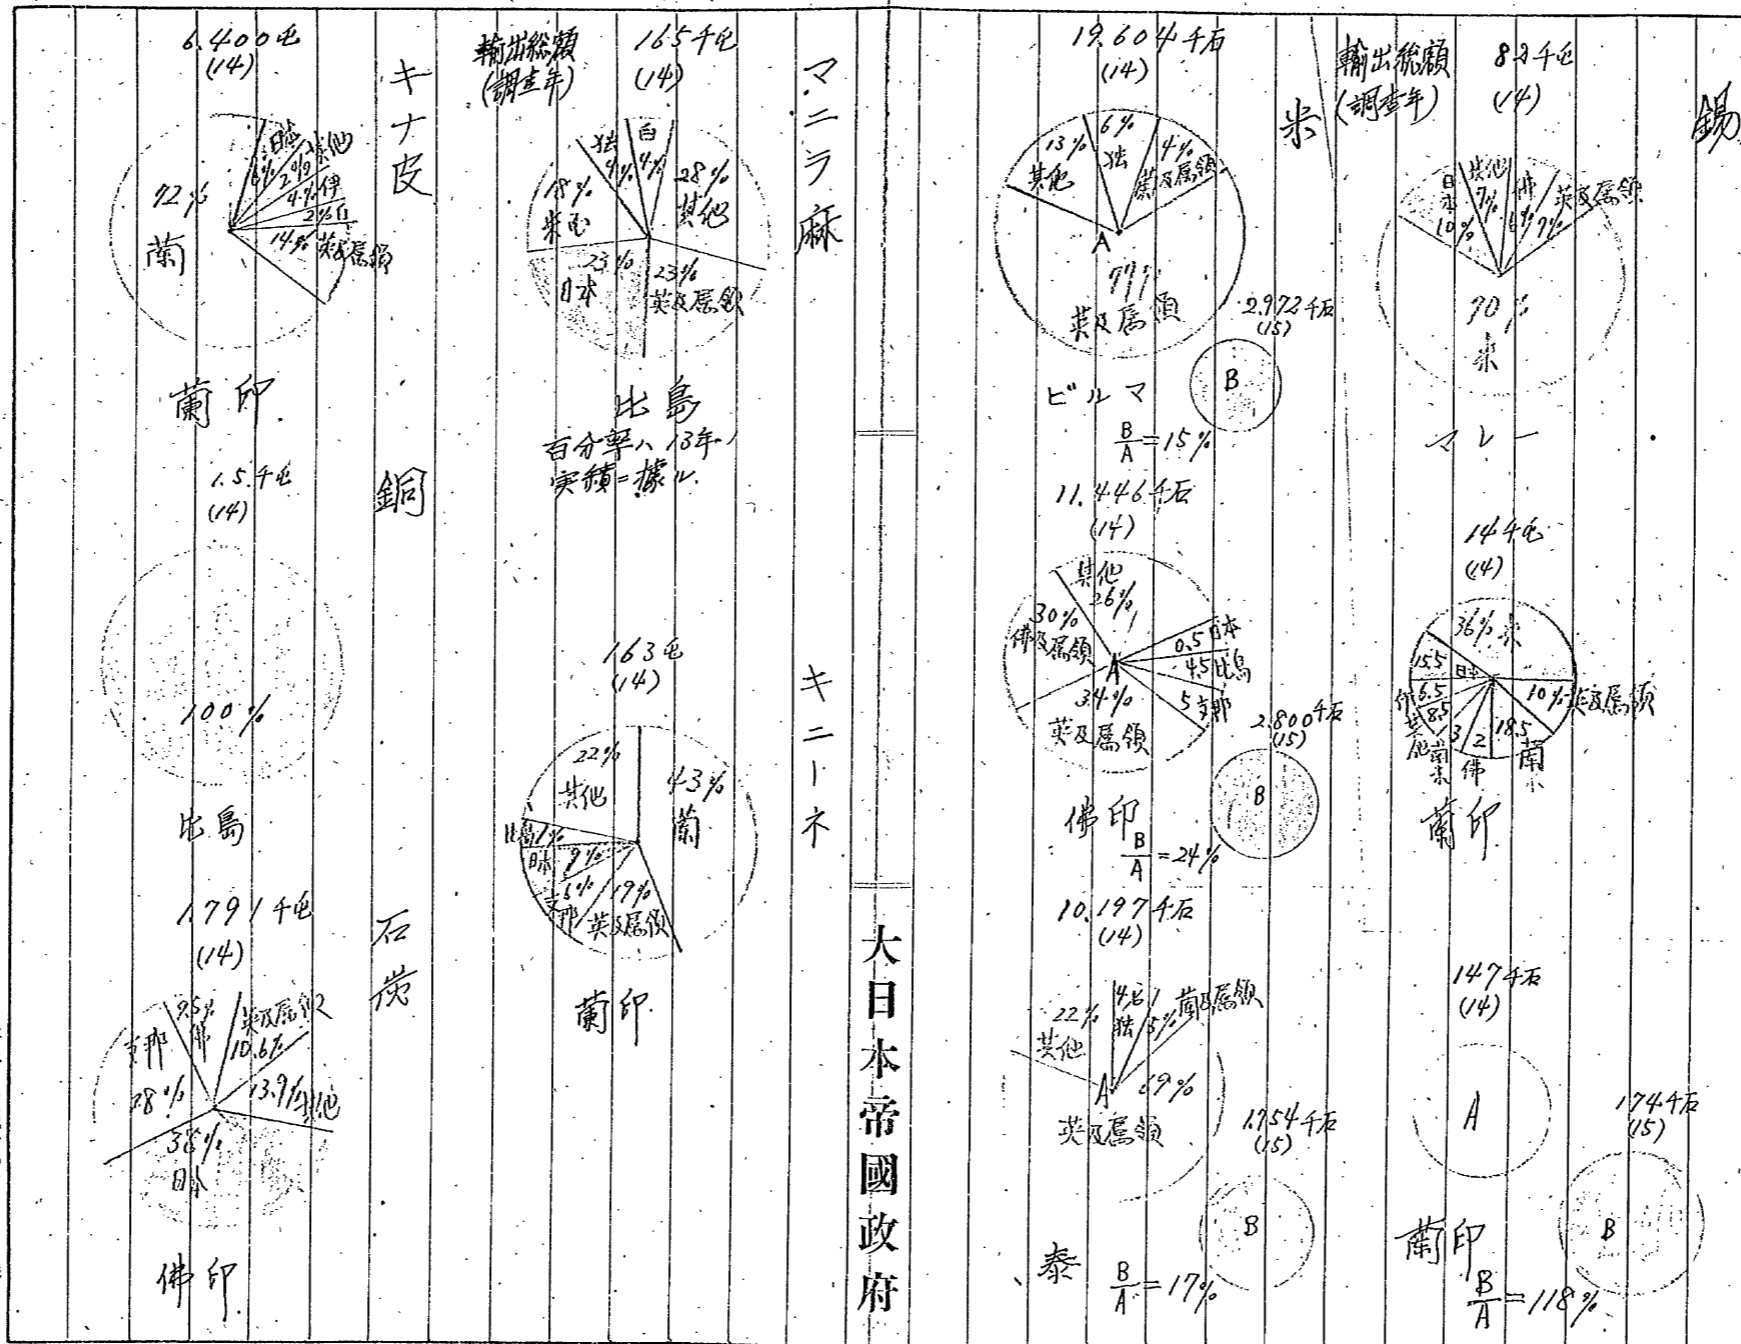 錫
輸出総額
(調査年)
82千屯
(14)
日本
10%
其他
7%
佛
6%
英及属領
7%
70%
米
マレー
14千屯
(14)
36% 米
15.5 日本
6.5
8.5
3
2
佛
18.5
蘭
10% 英及属領
蘭印
147千石
(14)
A
174千石
(15)
B
蘭印
B/A=118%
米
19.604千石
(14)
13%
其他
6%
独
4%
蘭及属領
A
77%
英及属領
2.972千石
(15)
B
ビルマ
B/A=15%
11.446千石
(14)
其他
26%
30%
佛及属領
0.5日本
4.5比島
5支那
A
34%
英及属領
2.800千石
(15)
B
佛印
B/A=24%
10.197千石
(14)
22%
其他
4%
独
5%
蘭及属領
A
69%
英及属領
1.754千石
(15)
B
泰
B/A=17%
大日本帝國政府
マニラ麻
輸出総額
(調査年)
165千屯
(14)
独
4%
白
4%
28%
其他
18%
米国
23%
日本
23%
英及属領
比島
百分率ハ13年ノ
実績ニ據ル
キニーネ
163屯
(14)
22%
其他
43%
蘭
比島1%
日本
9%
支那
6%
19%
英及属領
蘭印
キナ皮
6.400屯
(14)
72%
蘭
日本
6%
其他
2%
4%伊
2%白
14%英及属領
蘭印
銅
1.5千屯
(14)
100%
比島
石炭
1.791千屯
(14)
支那
28%
9.5%
佛
英及属領
10.6%
13.9%其他
38%
日本
佛印